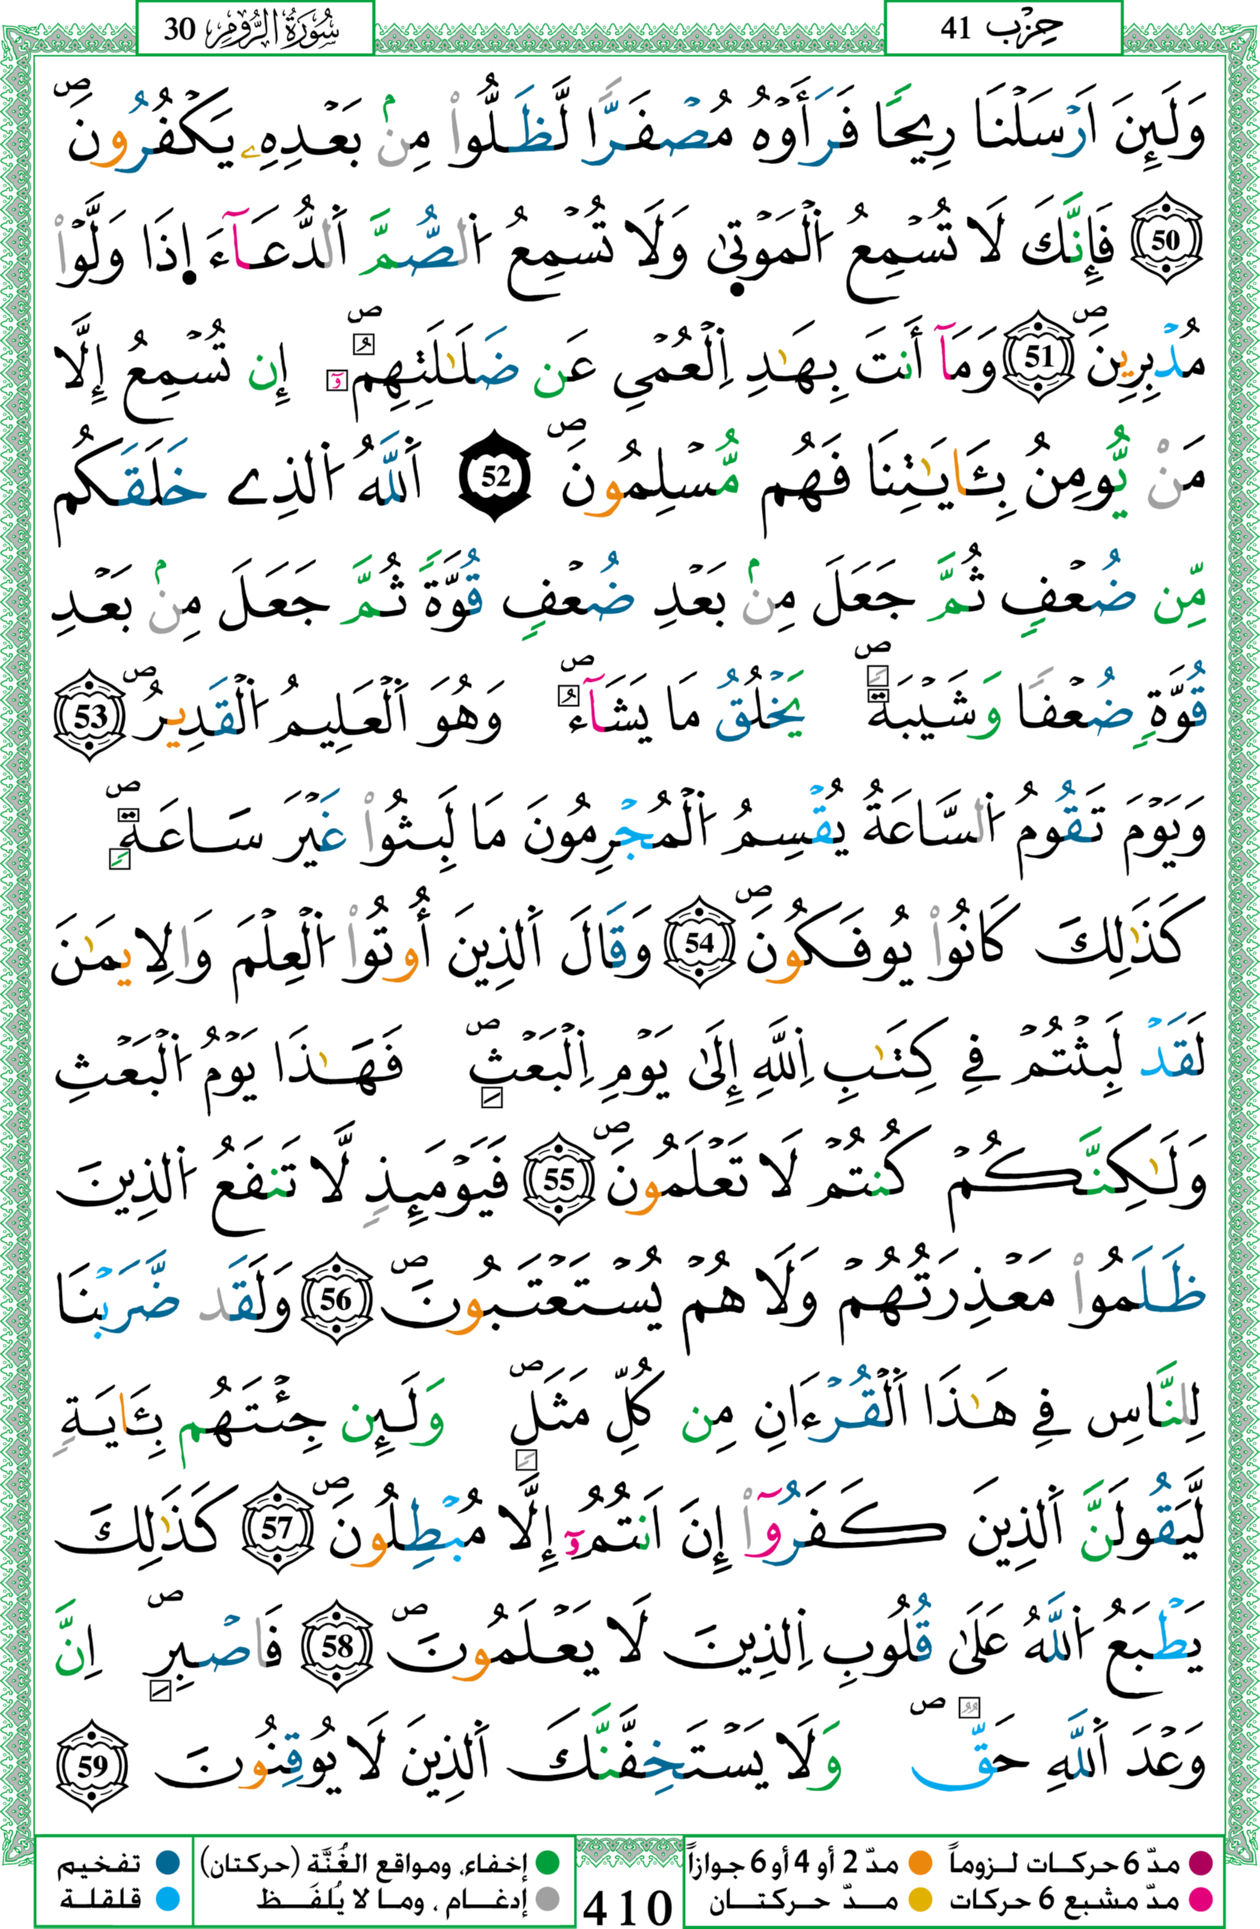 حِزْب 41
سُورَةُ الرُّومِ 30
وَلَئِنَ اَرْسَلْنَا رِيحًا فَرَأَوْهُ مُصْفَرًّا لَّظَلُّواْ مِنۢ بَعْدِهِۦ يَكْفُرُونَۖ
50 فَإِنَّكَ لَا تُسْمِعُ اُ۬لْمَوْت۪ىٰ وَلَا تُسْمِعُ اُ۬لصُّمَّ اَ۬لدُّعَآءَ اِ۪ذَا وَلَّوْاْ
مُدْبِرِينَۖ 51 وَمَآ أَنتَ بِهَٰدِ اِ۬لْعُمْيِ عَن ضَلَٰلَتِهِمُۥٓۖ إِن تُسْمِعُ إِلَّا
مَنْ يُّومِنُ بِـَٔايَٰتِنَا فَهُم مُّسْلِمُونَۖ 52 اَ۬للَّهُ اُ۬لذِے خَلَقَكُم
مِّن ضُعْفٖ ثُمَّ جَعَلَ مِنۢ بَعْدِ ضُعْفٖ قُوَّةٗ ثُمَّ جَعَلَ مِنۢ بَعْدِ
قُوَّةٖ ضُعْفاٗ وَشَيْبَةٗۖ يَخْلُقُ مَا يَشَآءُۖ وَهُوَ اَ۬لْعَلِيمُ اُ۬لْقَدِيرُۖ 53
وَيَوْمَ تَقُومُ اُ۬لسَّاعَةُ يُقْسِمُ اُ۬لْمُجْرِمُونَ مَا لَبِثُواْ غَيْرَ سَاعَةٖۖ
كَذَٰلِكَ كَانُواْ يُوفَكُونَۖ 54 وَقَالَ اَ۬لذِينَ أُوتُواْ اُ۬لْعِلْمَ وَالِايمَٰنَ
لَقَدْ لَبِثْتُمْ فِي كِتَٰبِ اِ۬للَّهِ إِلَىٰ يَوْمِ اِ۬لْبَعْثِۖ فَهَٰذَا يَوْمُ اُ۬لْبَعْثِ
وَلَٰكِنَّكُمْ كُنتُمْ لَا تَعْلَمُونَۖ 55 فَيَوْمَئِذٖ لَّا تَنفَعُ اُ۬لذِينَ
ظَلَمُواْ مَعْذِرَتُهُمْ وَلَا هُمْ يُسْتَعْتَبُونَۖ 56 وَلَقَد ضَّرَبْنَا
لِلنَّاسِ فِي هَٰذَا اَ۬لْقُرْءَانِ مِن كُلِّ مَثَلٖۖ وَلَئِن جِئْتَهُم بِـَٔايَةٖ
لَّيَقُولَنَّ اَ۬لذِينَ كَفَرُوٓاْ إِنَ اَنتُمُۥٓ إِلَّا مُبْطِلُونَۖ 57 كَذَٰلِكَ
يَطْبَعُ اُ۬للَّهُ عَلَىٰ قُلُوبِ اِ۬لذِينَ لَا يَعْلَمُونَۖ 58 فَاصْبِرِۖ اِنَّ
وَعْدَ اَ۬للَّهِ حَقّٞۖ وَلَا يَسْتَخِفَّنَّكَ اَ۬لذِينَ لَا يُوقِنُونَ 59
مدّ 6 حركات لـزوماً مدّ 2 أو 4 أو 6 جوازاً
مدّ مشبع 6 حركات مدّ حركتان
410
إخفاء، ومواقع الغُنَّة (حركتان) تفخيم
إدغام ، وما لا يُلفَظ قلقلة